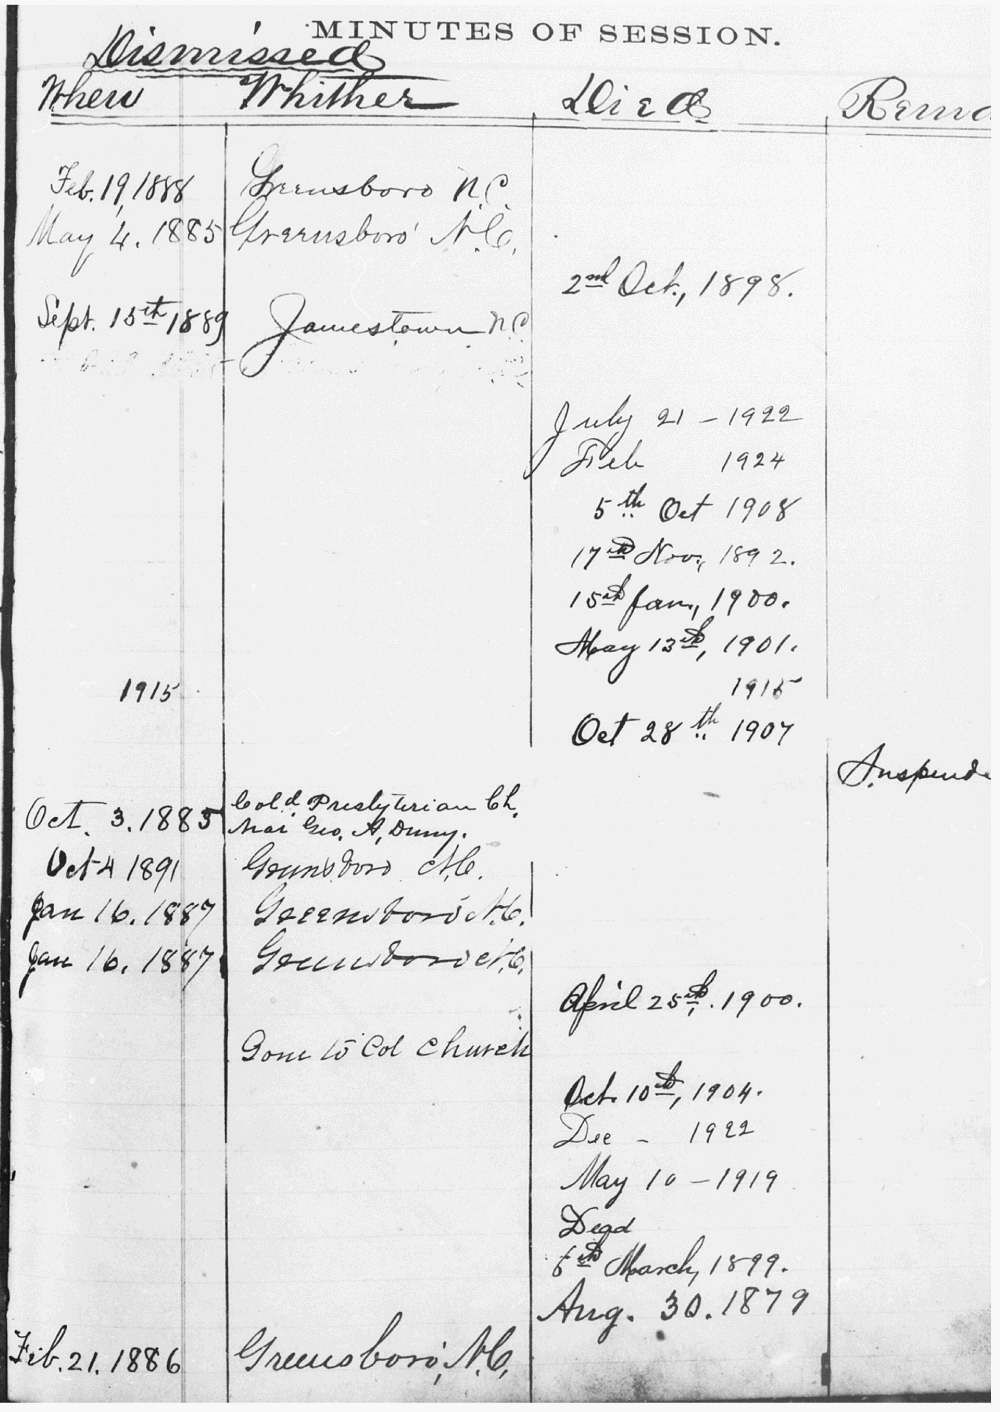 MINUTES OF SESSION.
Dismissed
When Whither Died Rema
Feb. 19, 1888 Greensboro N.C.
May 4. 1885 Greensboro N.C.
2nd Oct., 1898.
Sept. 15th 1889 Jamestown N.C.
July 21 - 1922
Feb 1924
5th Oct 1908
17th Nov., 1892.
15th Jan., 1900.
May 13th, 1901.
1915 1915
Oct 28th 1907
Suspende
Oct. 3. 1885 Col'd Presbyterian Ch.
near Geo. A.
Oct 4 1891 Greensboro N.C.
Jan 16. 1887 Greensboro N.C.
Jan 16. 1887 Greensboro N.C.
April 25th. 1900.
Gone to Col Church
Oct. 10th, 1904.
Dec - 1922
May 10 - 1919
Dead
March, 1899.
Aug. 30. 1879
Feb. 21. 1886 Greensboro, N.C.